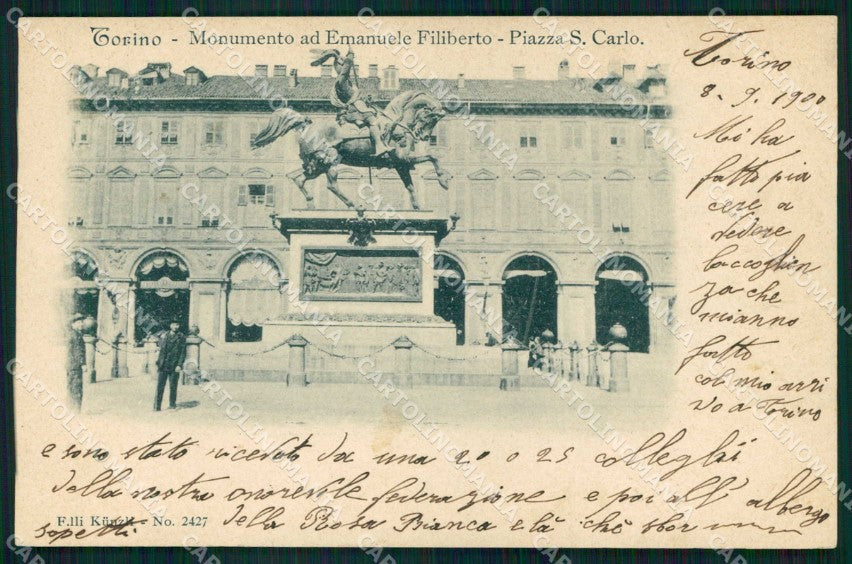 Torino - Monumento ad Emanuele Filiberto - Piazza S. Carlo.
Torino
8. 9. 1900
Mi ha
fatto pia
cere a
vedere
laccoglien
za che
mianno
fatto
col mio arri
vo a Torino
e sono stato ricevuto da una 20 o 25 colleghi
della nostra onorevole federazione e poi all' albergo
F.lli Künzli - No. 2427
della Rosa Bianca e là che
sopetti
CARTOLINOMANIA